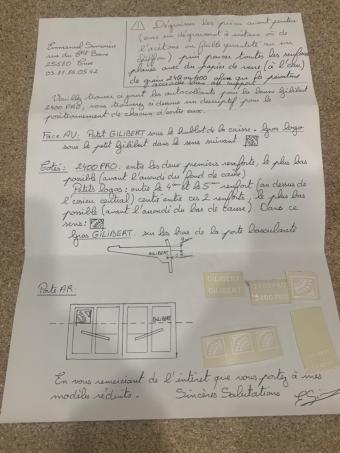 Emmanuel
rue du 6ème
25680
03.81.86.05.42
⚠ Dégraisser les pièces avant peinture
(avec un dégraissant à vitres ou de
l'acétone en faible quantité sur un
chiffon) puis poncer toutes les surfaces
planes avec du papier de verre (à l'eau)
de grain 240 ou 400 afin que la peinture
accroche bien au support.
Veuillez trouver ci joint les autocollants pour la benne Gilibert
2400 PRO, vous trouverez ci dessous un descriptif pour le
positionnement de chacun d'entre eux.
Face AV: Petit GILIBERT sous le hublot de la caisse. Gros logo
sous le petit Gilibert dans le sens suivant
Cotés: 2400 PRO: entre les deux premiers renforts, le plus bas
possible (avant l'arrondi du fond de caisse)
Petits logos: entre le 4ème et le 5ème renfort (au dessus de
l'essieu central) centré entre ces 2 renforts, le plus bas
possible (avant l'arrondi du bas de caisse). Dans ce
sens:
Gros GILIBERT: sur les bras de la porte basculante
GILIBERT
Porte AR:
GILIBERT
GILIBERT
2400 PRO
En vous remerciant de l'intérêt que vous portez à mes
modèles réduits. Sincères Salutations